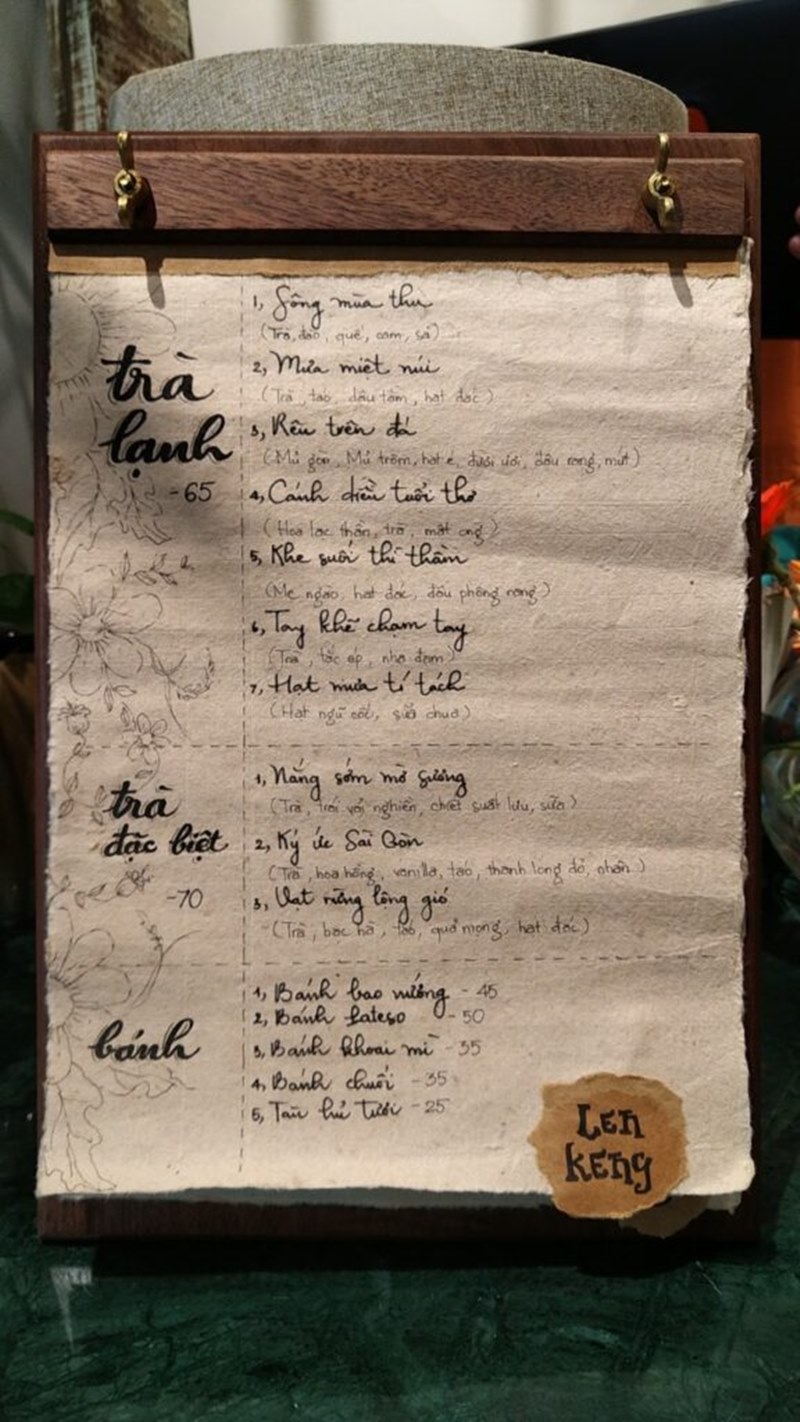 trà
lạnh
-65
1, Sông mùa thu
(Trà, đào, quế, cam, sả)
2, Mưa miệt núi
(Trà, táo, dâu tằm, hạt đác)
3, Rêu trên đá
(Mủ gòn, Mủ trôm, hạt é, đười ươi, đậu rang, mứt)
4, Cánh diều tuổi thơ
(Hoa lạc thần, trà, mật ong)
5, Khe suối thì thầm
(Me ngào, hạt đác, đậu phộng rang)
6, Tay khẽ chạm tay
(Trà, tắc ép, nha đam)
7, Hạt mưa tí tách
(Hạt ngũ cốc, sữa chua)
trà
đặc biệt
-70
1, Nắng sớm mờ sương
(Trà, trái vải nghiền, chiết suất lựu, sữa)
2, Ký ức Sài Gòn
(Trà, hoa hồng, vanilla, táo, thanh long đỏ, nhãn)
3, Vạt rừng lộng gió
(Trà, bạc hà, táo, quả mọng, hạt đác)
bánh
1, Bánh bao nướng - 45
2, Bánh - 50
3, Bánh khoai mì - 35
4, Bánh chuối - 35
5, Tàu hủ tươi - 25
Len
Keng